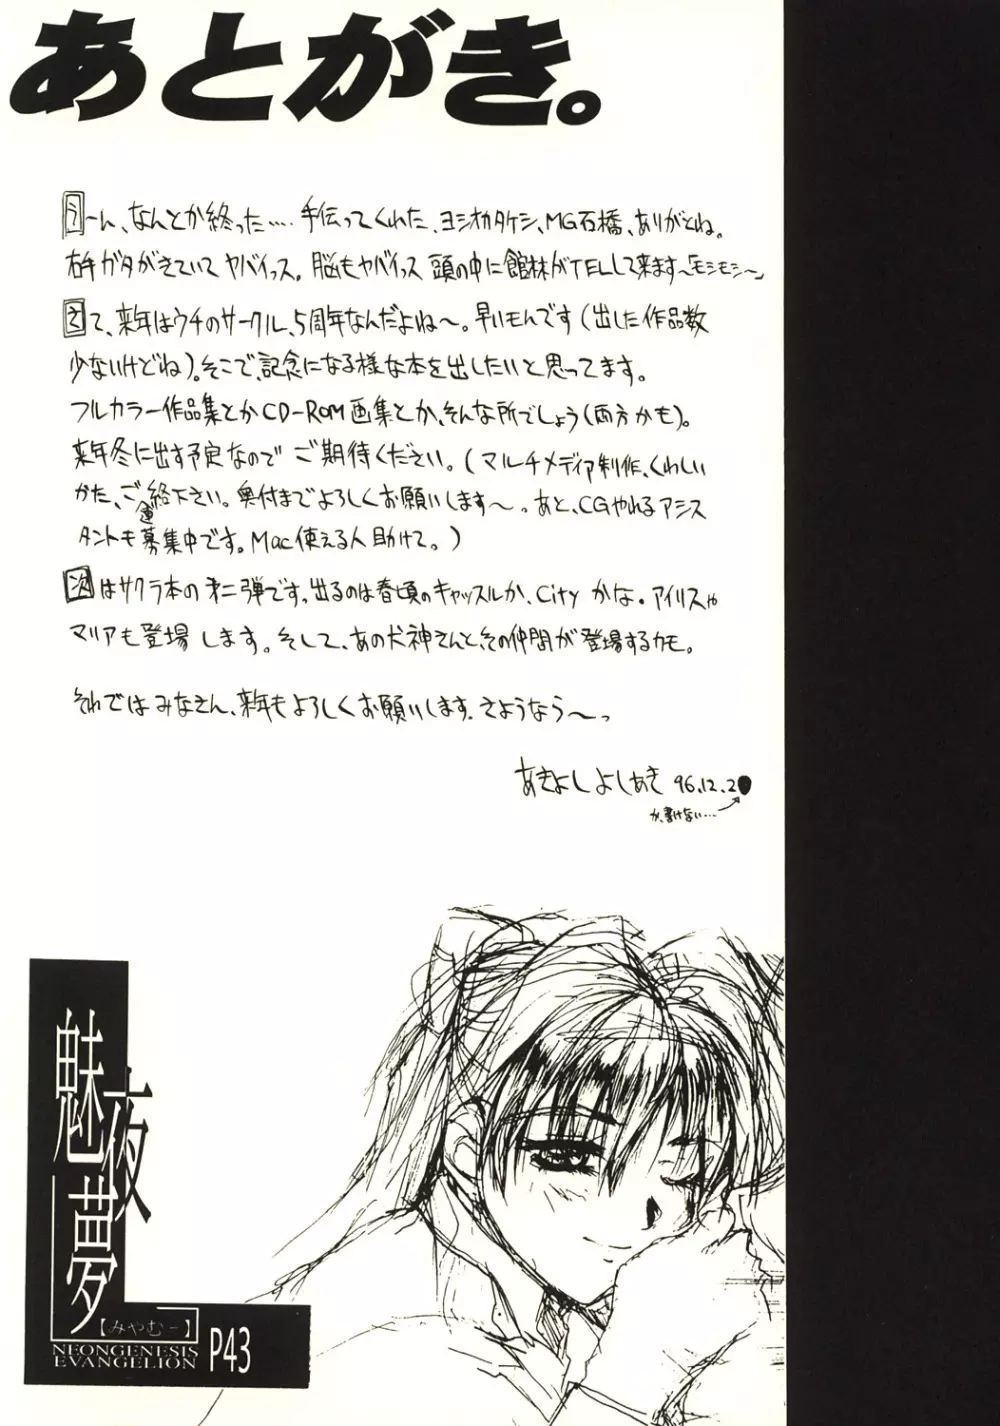 あとがき。
うーん、なんとか終った…‥ 手伝ってくれた、ヨシオカタケシ、MG石橋、ありがとね。
右手ガタがきていてヤバイっス。脳もヤバイっス 頭の中に館林がTELして来ます〜「モシモシ〜」
さて、来年はウチのサークル、5周年なんだよね〜。早いモんです(出した作品数
少ないけどね)。そこで、記念になる様な本を出したいと思ってます。
フルカラー作品集とかCD-ROM画集とか、そんな所でしょう(両方かも)。
来年冬に出す予定なので ご期待ください。(マルチメディア制作、くわしい
かた、ご連絡下さい。奥付までよろしくお願いします〜。あと、CGやれるアシス
タントも募集中です。Mac使える人助けて。)
次はサクラ本の第二弾です。出るのは春頃のキャッスルか、City かな。アイリスや
マリアも登場します。そして、あの犬神さんと、その仲間が登場するカモ。
それではみなさん、来年もよろしくお願いします。さようなら〜っ
あきよしよしあき 96.12.2
が、書けない…
魅夜夢
【みやむー】
NEONGENESIS
EVANGELION
P43